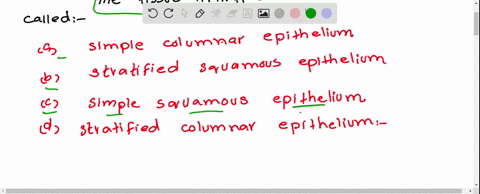 called:-
(a) simple columnar epithelium
(b) stratified squamous epithelium
(c) simple squamous epithelium
(d) stratified columnar epithelium:-